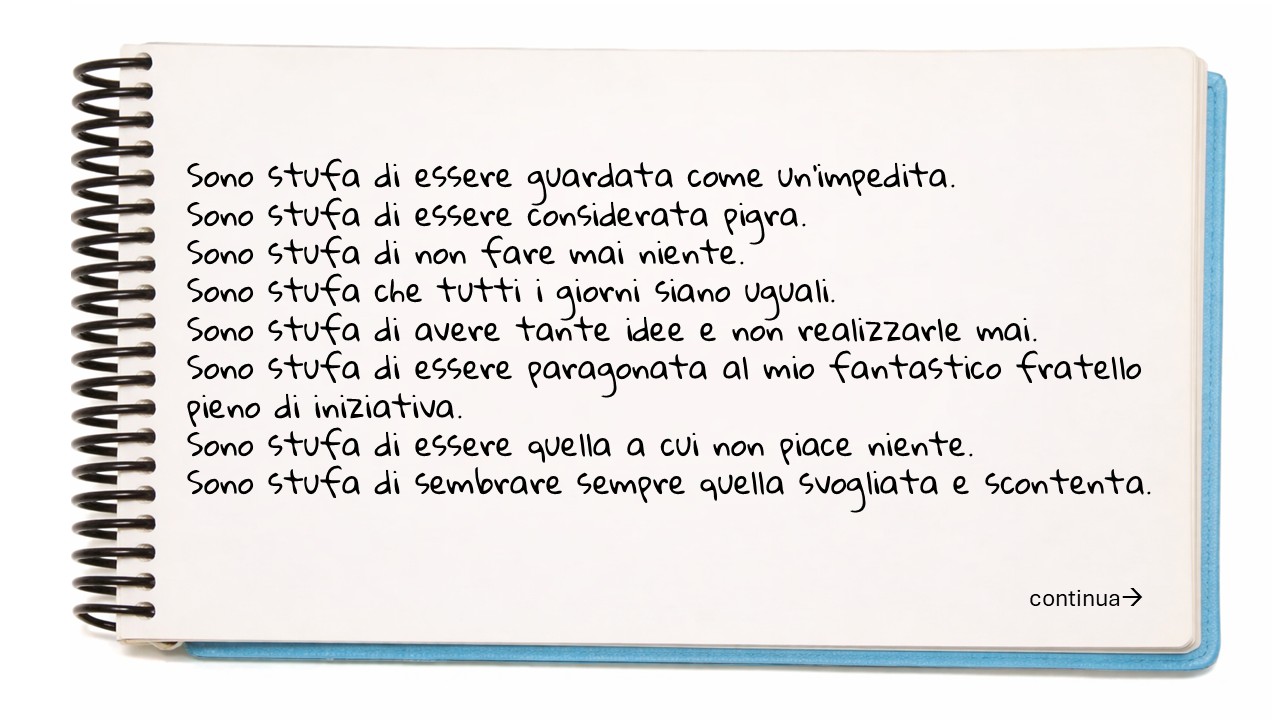 Sono stufa di essere guardata come un'impedita.
Sono stufa di essere considerata pigra.
Sono stufa di non fare mai niente.
Sono stufa che tutti i giorni siano uguali.
Sono stufa di avere tante idee e non realizzarle mai.
Sono stufa di essere paragonata al mio fantastico fratello
pieno di iniziativa.
Sono stufa di essere quella a cui non piace niente.
Sono stufa di sembrare sempre quella svogliata e scontenta.
continua→